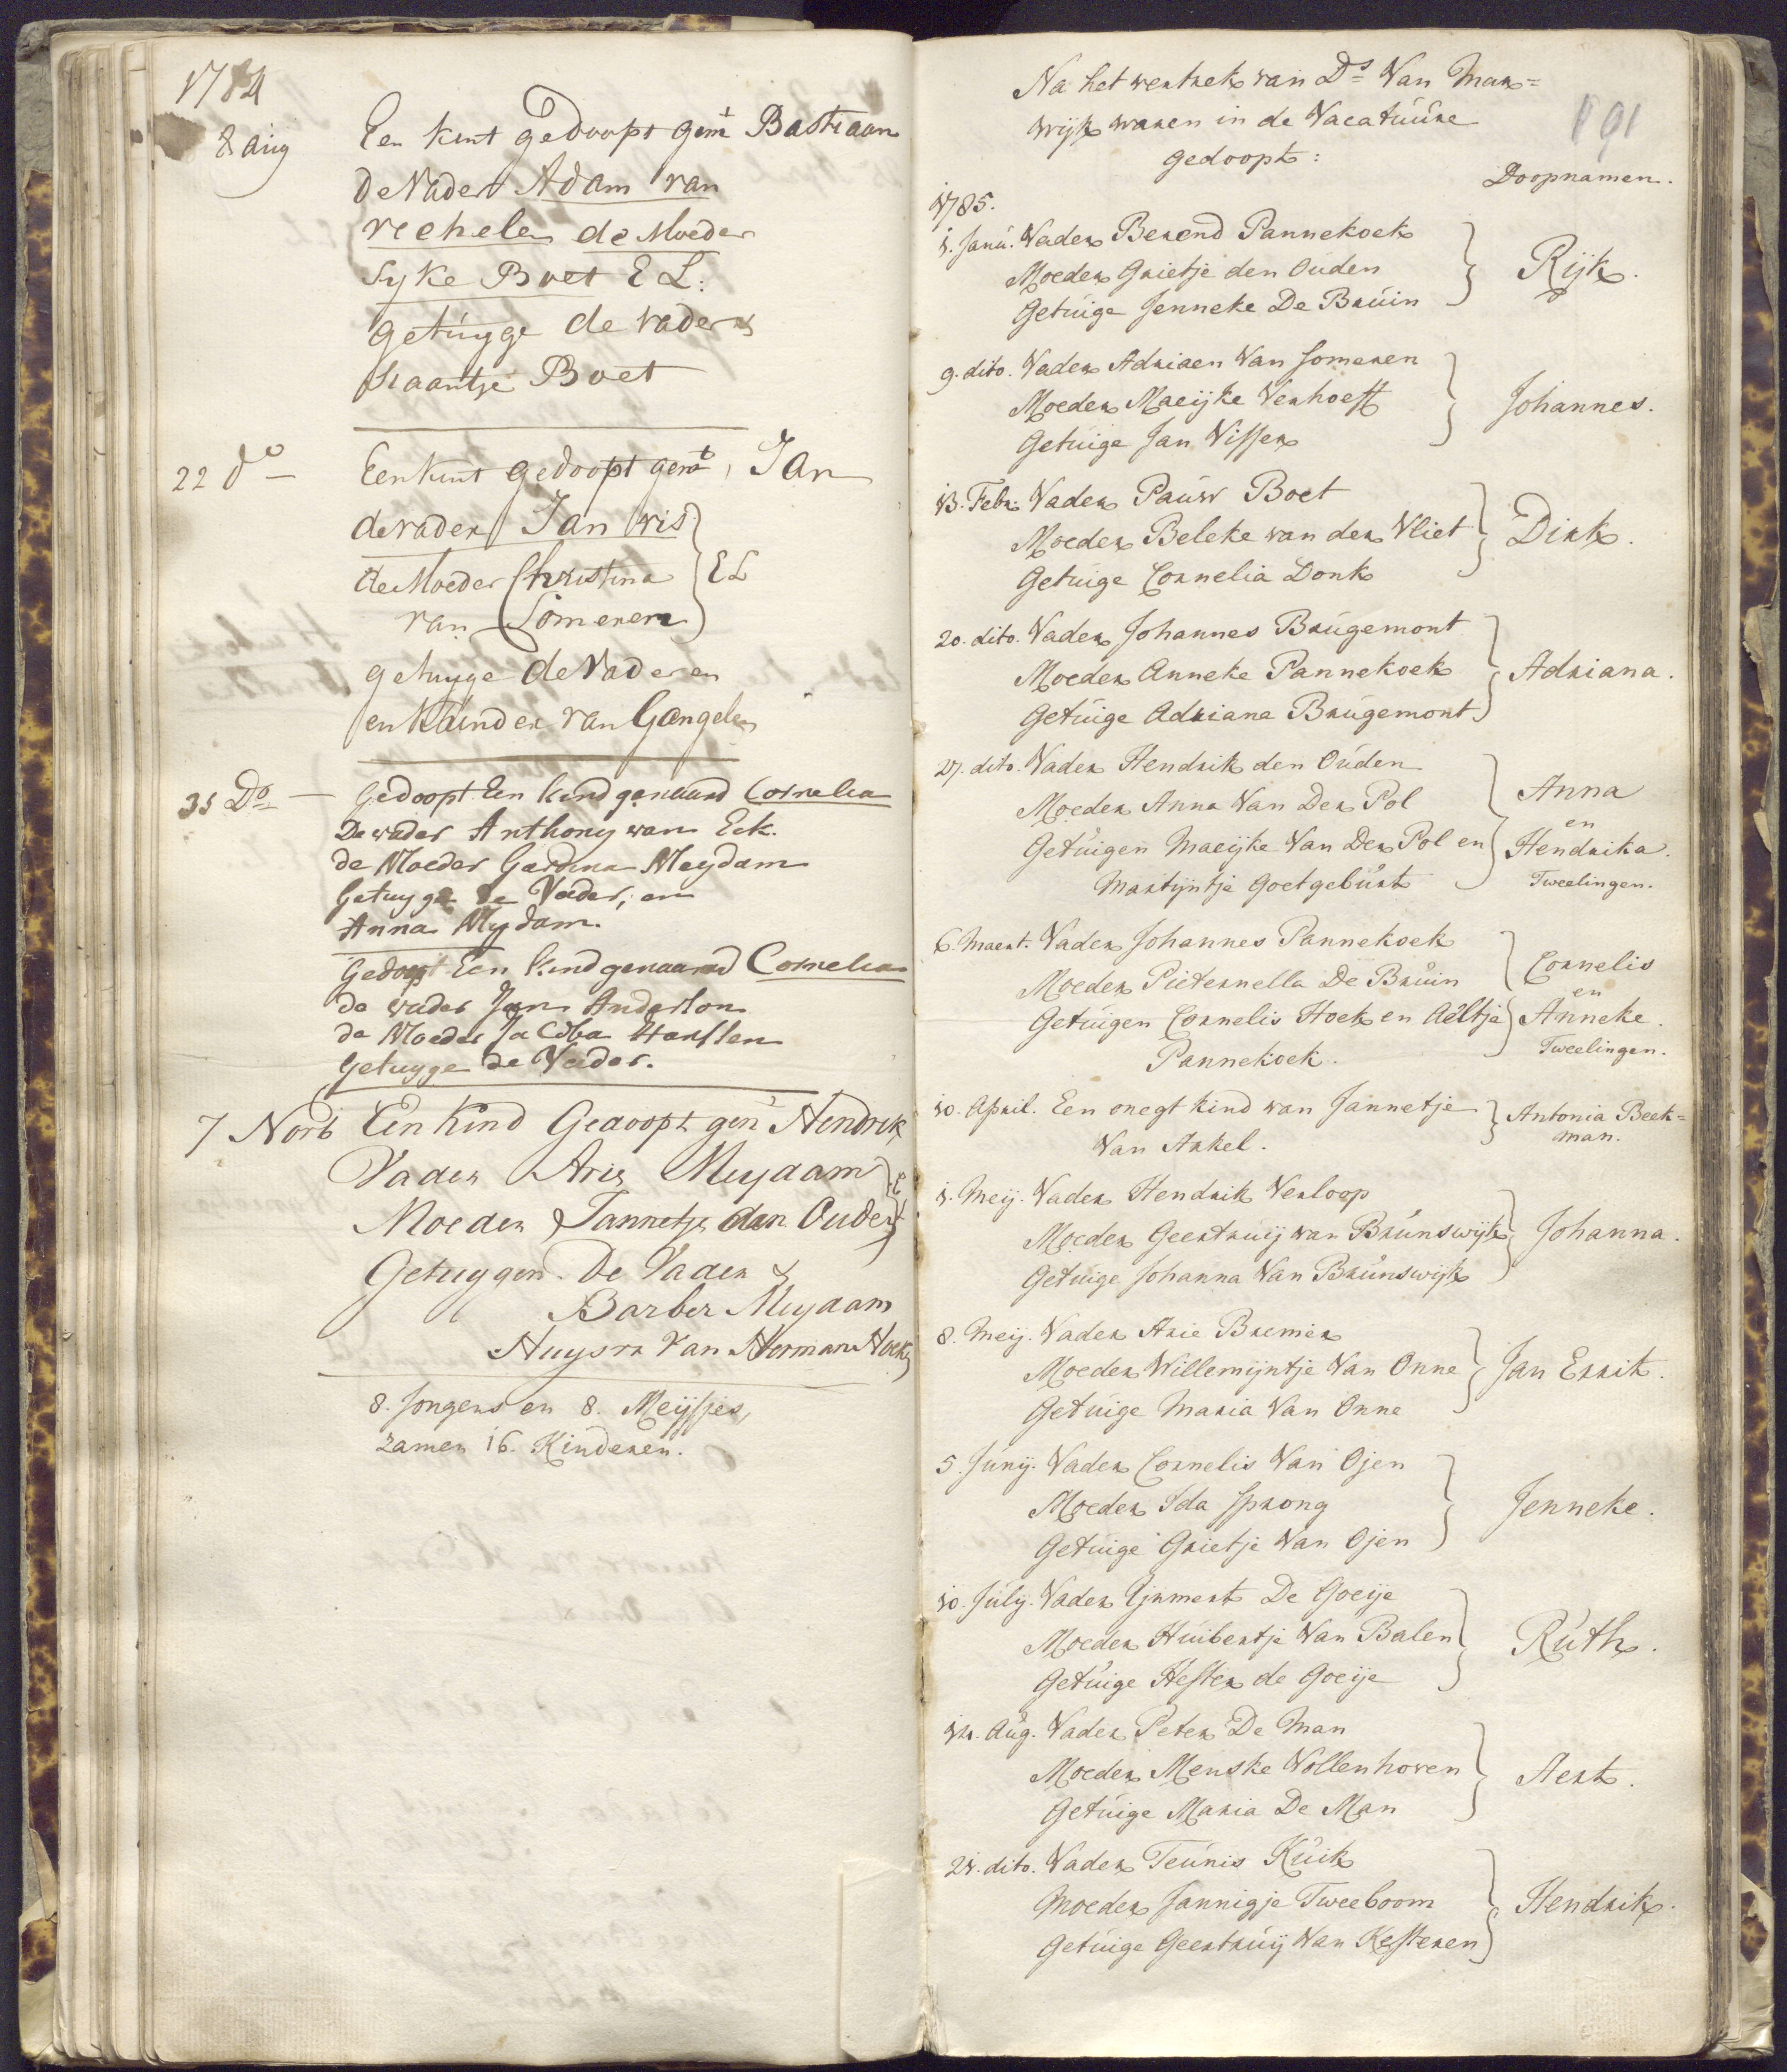 1784
8 aug Een kint gedoopt gent Bastiaan
de Vader Adam van
vechelen de Moeder
Syke Boet E L:
getuyge de vader &
Haantje Boet
22 do Een kint gedoopt gent, Jan
de vader Jan vis
de Moeder Christina } E L
van Someren
getuyge de Vader en
en van Gangelen
31 Do Gedoopt Een kind genaamd Cornelia
De vader Anthony van Eck.
de Moeder Gerdina Meydam
Getuyge de Vader, en
Anna Mydam.
Gedoopt Een kind genaamd Cornelia
de vader Jan Anderson
de Moeder Jacoba Hanssen
Getuyge de Vader.
7 Novb Een Kind Gedoopt gent Hendrik
Vader Arie Meydam
Moeder Jannetje den Ouden
Getuygen De Vader &
Barber Meydam
Huysvr van Herman Hoek
8. Jongens en 8. Meijsjes,
zamen 16. Kinderen.
Na het vertrek van Ds Van Mar=
wijk waren in de Vacatuure
gedoopt:
191
Doopnamen.
1785.
1. Janu. Vader Berend Pannekoek
Moeder Grietje den Ouden } Rijk.
Getuige Jenneke De Bruin
9. dito. Vader Adriaen Van Someren
Moeder Maeijke Verhoeff } Johannes.
Getuige Jan Visser
13. Febr. Vader Pauw Boet
Moeder Beleke van der Vliet } Dirk.
Getuige Cornelia Donk
20. dito. Vader Johannes Brugemont
Moeder Anneke Pannekoek } Adriana.
Getuige Adriana Brugemont
27. dito. Vader Hendrik den Ouden
Moeder Anna Van Der Pol } Anna
en
Getuigen Maeijke Van Der Pol en Hendrika.
Martijntje Goetgeburt Tweelingen.
6. Maert. Vader Johannes Pannekoek
Moeder Pieternella De Bruin } Cornelis
en
Getuigen Cornelis Hoek en Aeltje Anneke.
Pannekoek. Tweelingen.
10. April. Een onegt kind van Jannetje } Antonia Beek=
Van Arkel. man.
1. Meij. Vader Hendrik Verloop
Moeder Geertruij van Brunswijk } Johanna.
Getuige Johanna Van Brunswijk
8. Meij. Vader Arie Bremer
Moeder Willemijntje Van Onne } Jan Errit.
Getuige Maria Van Onne
5. Junij. Vader Cornelis Van Ojen
Moeder Ida Sprong } Jenneke.
Getuige Grietje Van Ojen
10. Julij. Vader IJsmert De Goeije
Moeder Huibertje Van Balen } Ruth.
Getuige Hester de Goeije
14. Aug. Vader Peter De Man
Moeder Menske Vollenhoven } Aert.
Getuige Maria De Man
21. dito. Vader Teunis Kuik
Moeder Jannigje Tweeboom } Hendrik.
Getuige Geertruij Van Kesteren